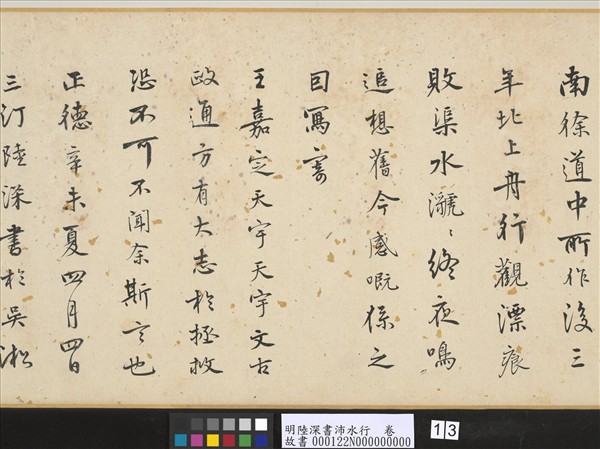 南徐道中所作後三
年北上舟行觀漂痕
敗渠水㶁〻終夜鳴
追想舊今感嘅係之
因寫寄
王嘉定天宇天宇文古
政通方有大志於拯救
恐不可不聞余斯言也
正德辛未夏四月四日
三汀陸深書於吳淞
明陸深書沛水行　卷
故書 000122N000000000
1 3